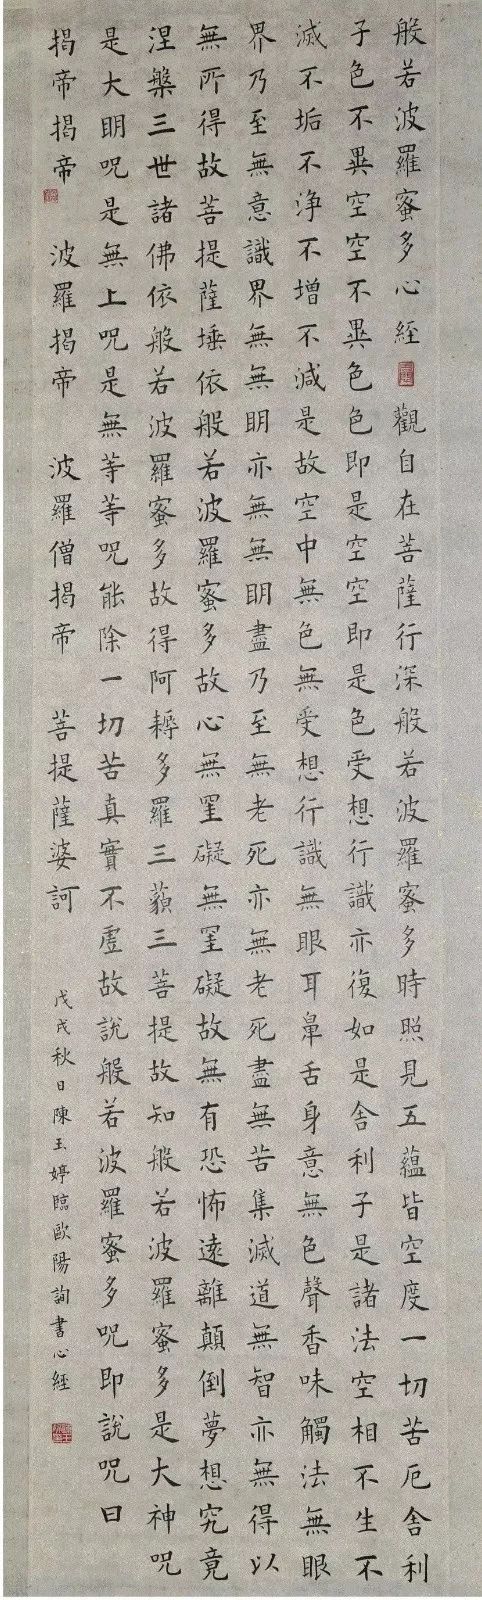 般若波羅蜜多心經 觀自在菩薩行深般若波羅蜜多時照見五蘊皆空度一切苦厄舍利
子色不異空空不異色色即是空空即是色受想行識亦復如是舍利子是諸法空相不生不
滅不垢不淨不增不減是故空中無色無受想行識無眼耳鼻舌身意無色聲香味觸法無眼
界乃至無意識界無無明亦無無明盡乃至無老死亦無老死盡無苦集滅道無智亦無得以
無所得故菩提薩埵依般若波羅蜜多故心無罣礙無罣礙故無有恐怖遠離顛倒夢想究竟
涅槃三世諸佛依般若波羅蜜多故得阿耨多羅三藐三菩提故知般若波羅蜜多是大神呪
是大明呪是無上呪是無等等呪能除一切苦真實不虛故說般若波羅蜜多呪即說呪曰
揭帝揭帝 波羅揭帝 波羅僧揭帝 菩提薩婆訶
戊戌秋日陳玉婷臨歐陽詢書心經